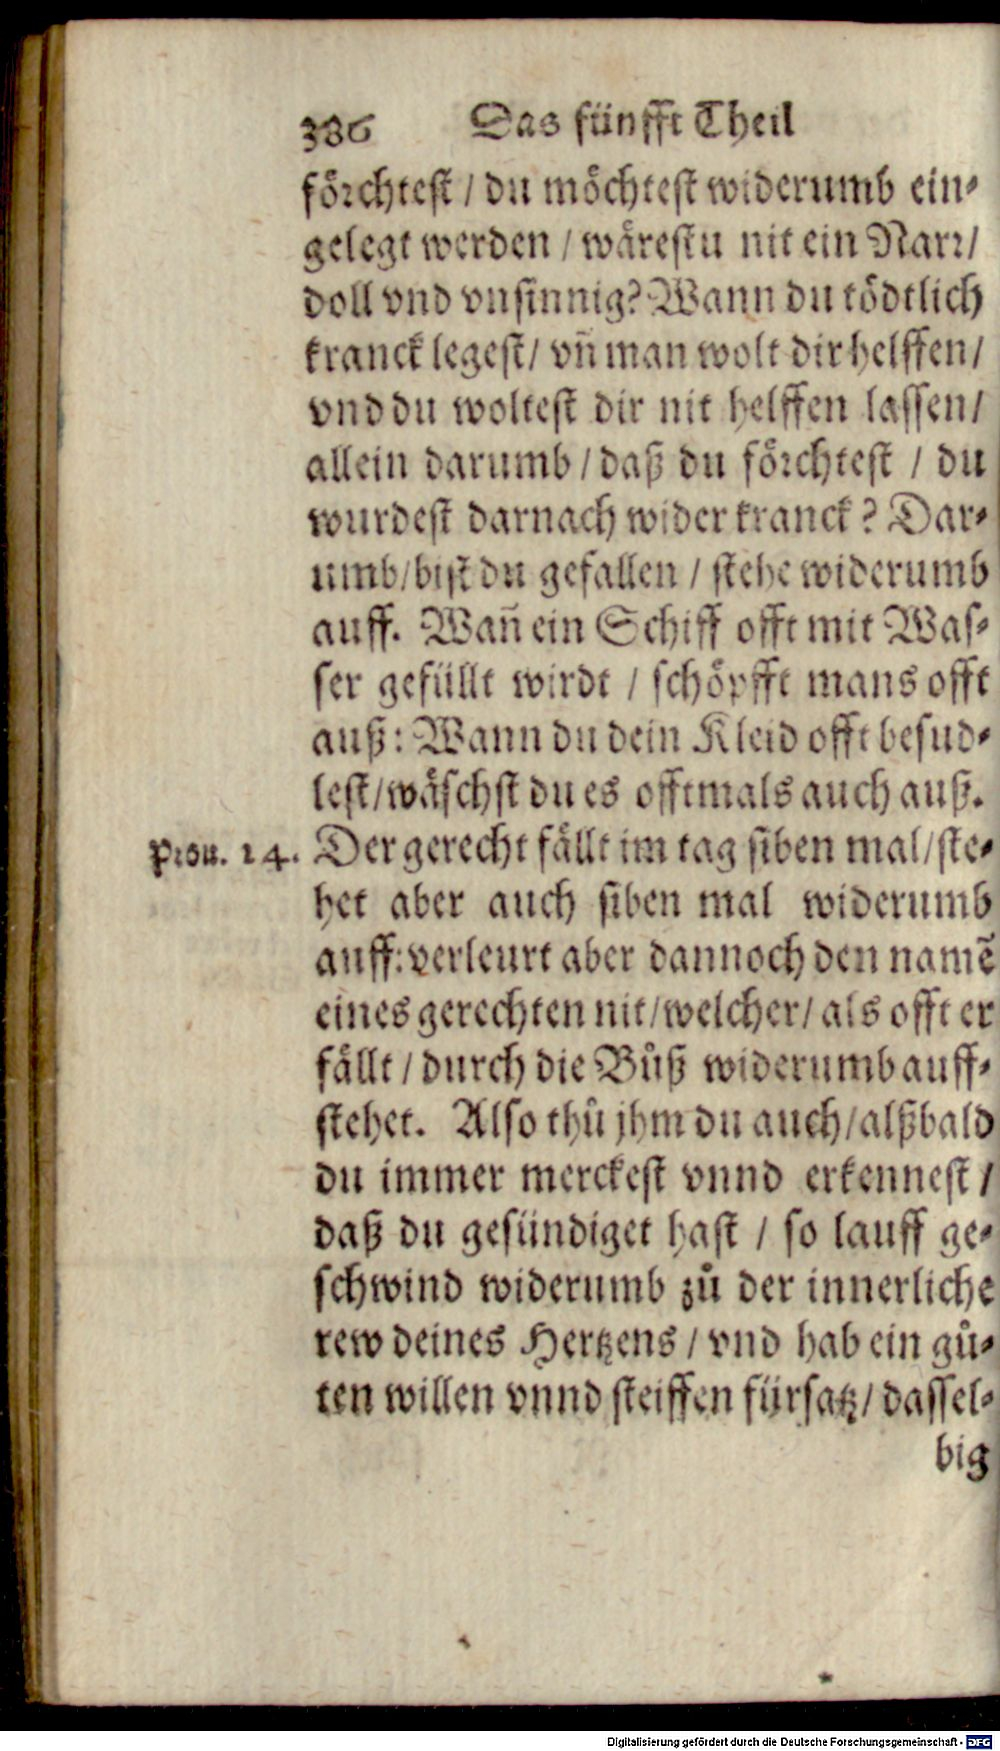 386 Das fünfft Theil
förchtest / du möchtest widerumb ein-
gelegt werden / wärestu nit ein Narr /
doll vnd vnsinnig? Wann du tödtlich
kranck legest / vn̄ man wolt dir helffen /
vnd du woltest dir nit helffen lassen /
allein darumb / daß du förchtest / du
wurdest darnach wider kranck? Dar-
umb / bist du gefallen / stehe widerumb
auff. Wan̄ ein Schiff offt mit Was-
ser gefüllt wirdt / schöpfft mans offt
auß: Wann du dein Kleid offt besud-
lest / wäschst du es offtmals auch auß.
Prou. 14. Der gerecht fällt im tag siben mal / ste-
het aber auch siben mal widerumb
auff: verleurt aber dannoch den namē
eines gerechten nit / welcher / als offt er
fällt / durch die Bůß widerumb auff-
stehet. Also thů jhm du auch / alßbald
du immer merckest vnnd erkennest /
daß du gesündiget hast / so lauff ge-
schwind widerumb zů der innerliche
rew deines Hertzens / vnd hab ein gů-
ten willen vnnd steiffen fürsatz / dassel-
big
Digitalisierung gefördert durch die Deutsche Forschungsgemeinschaft - DFG